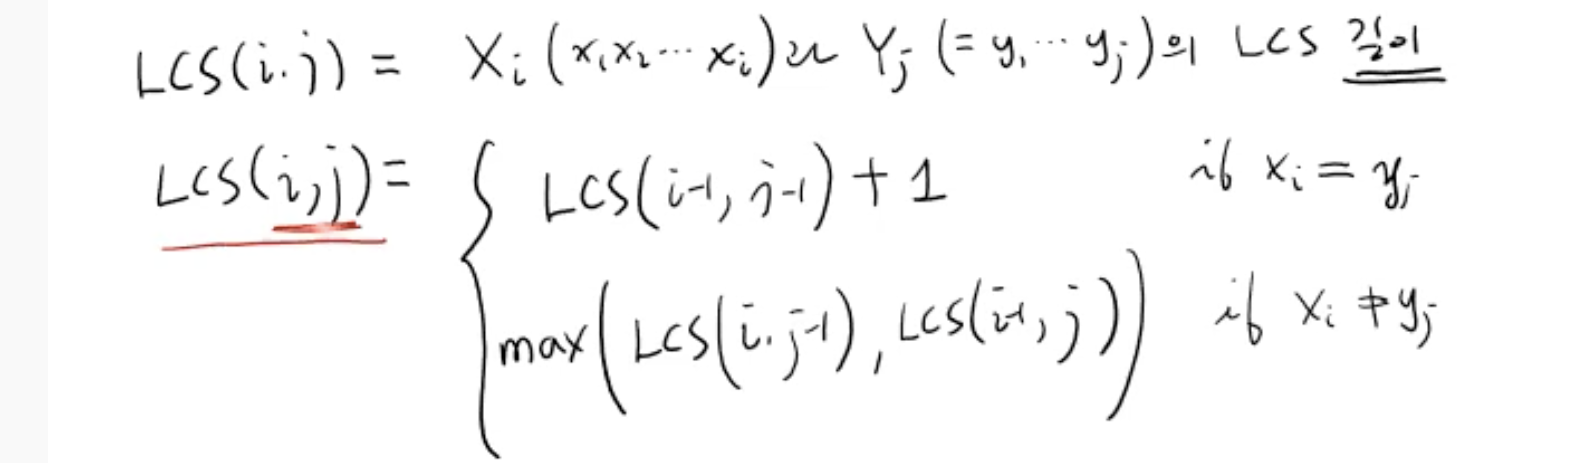 LCS(i.j) = Xi (x1x2…xi)와 Yj (= y1…yj)의 LCS 길이
LCS(i,j) = { LCS(i-1, j-1) + 1 if xi = yj
max(LCS(i.j-1), LCS(i-1, j)) if xi ≠ yj